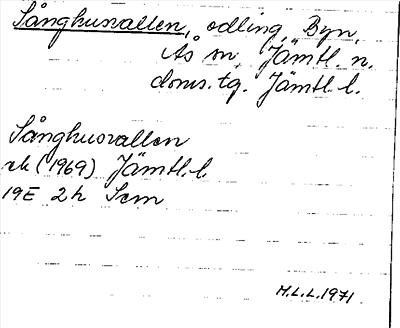 Sånghusvallen, odling, Byn,
Ås sn, Jämtl. n.
doms. tg. Jämtl. l.
Sånghusvallen
ek (1969) Jämtl. l.
19E 2h Scm
M.L.L. 1971